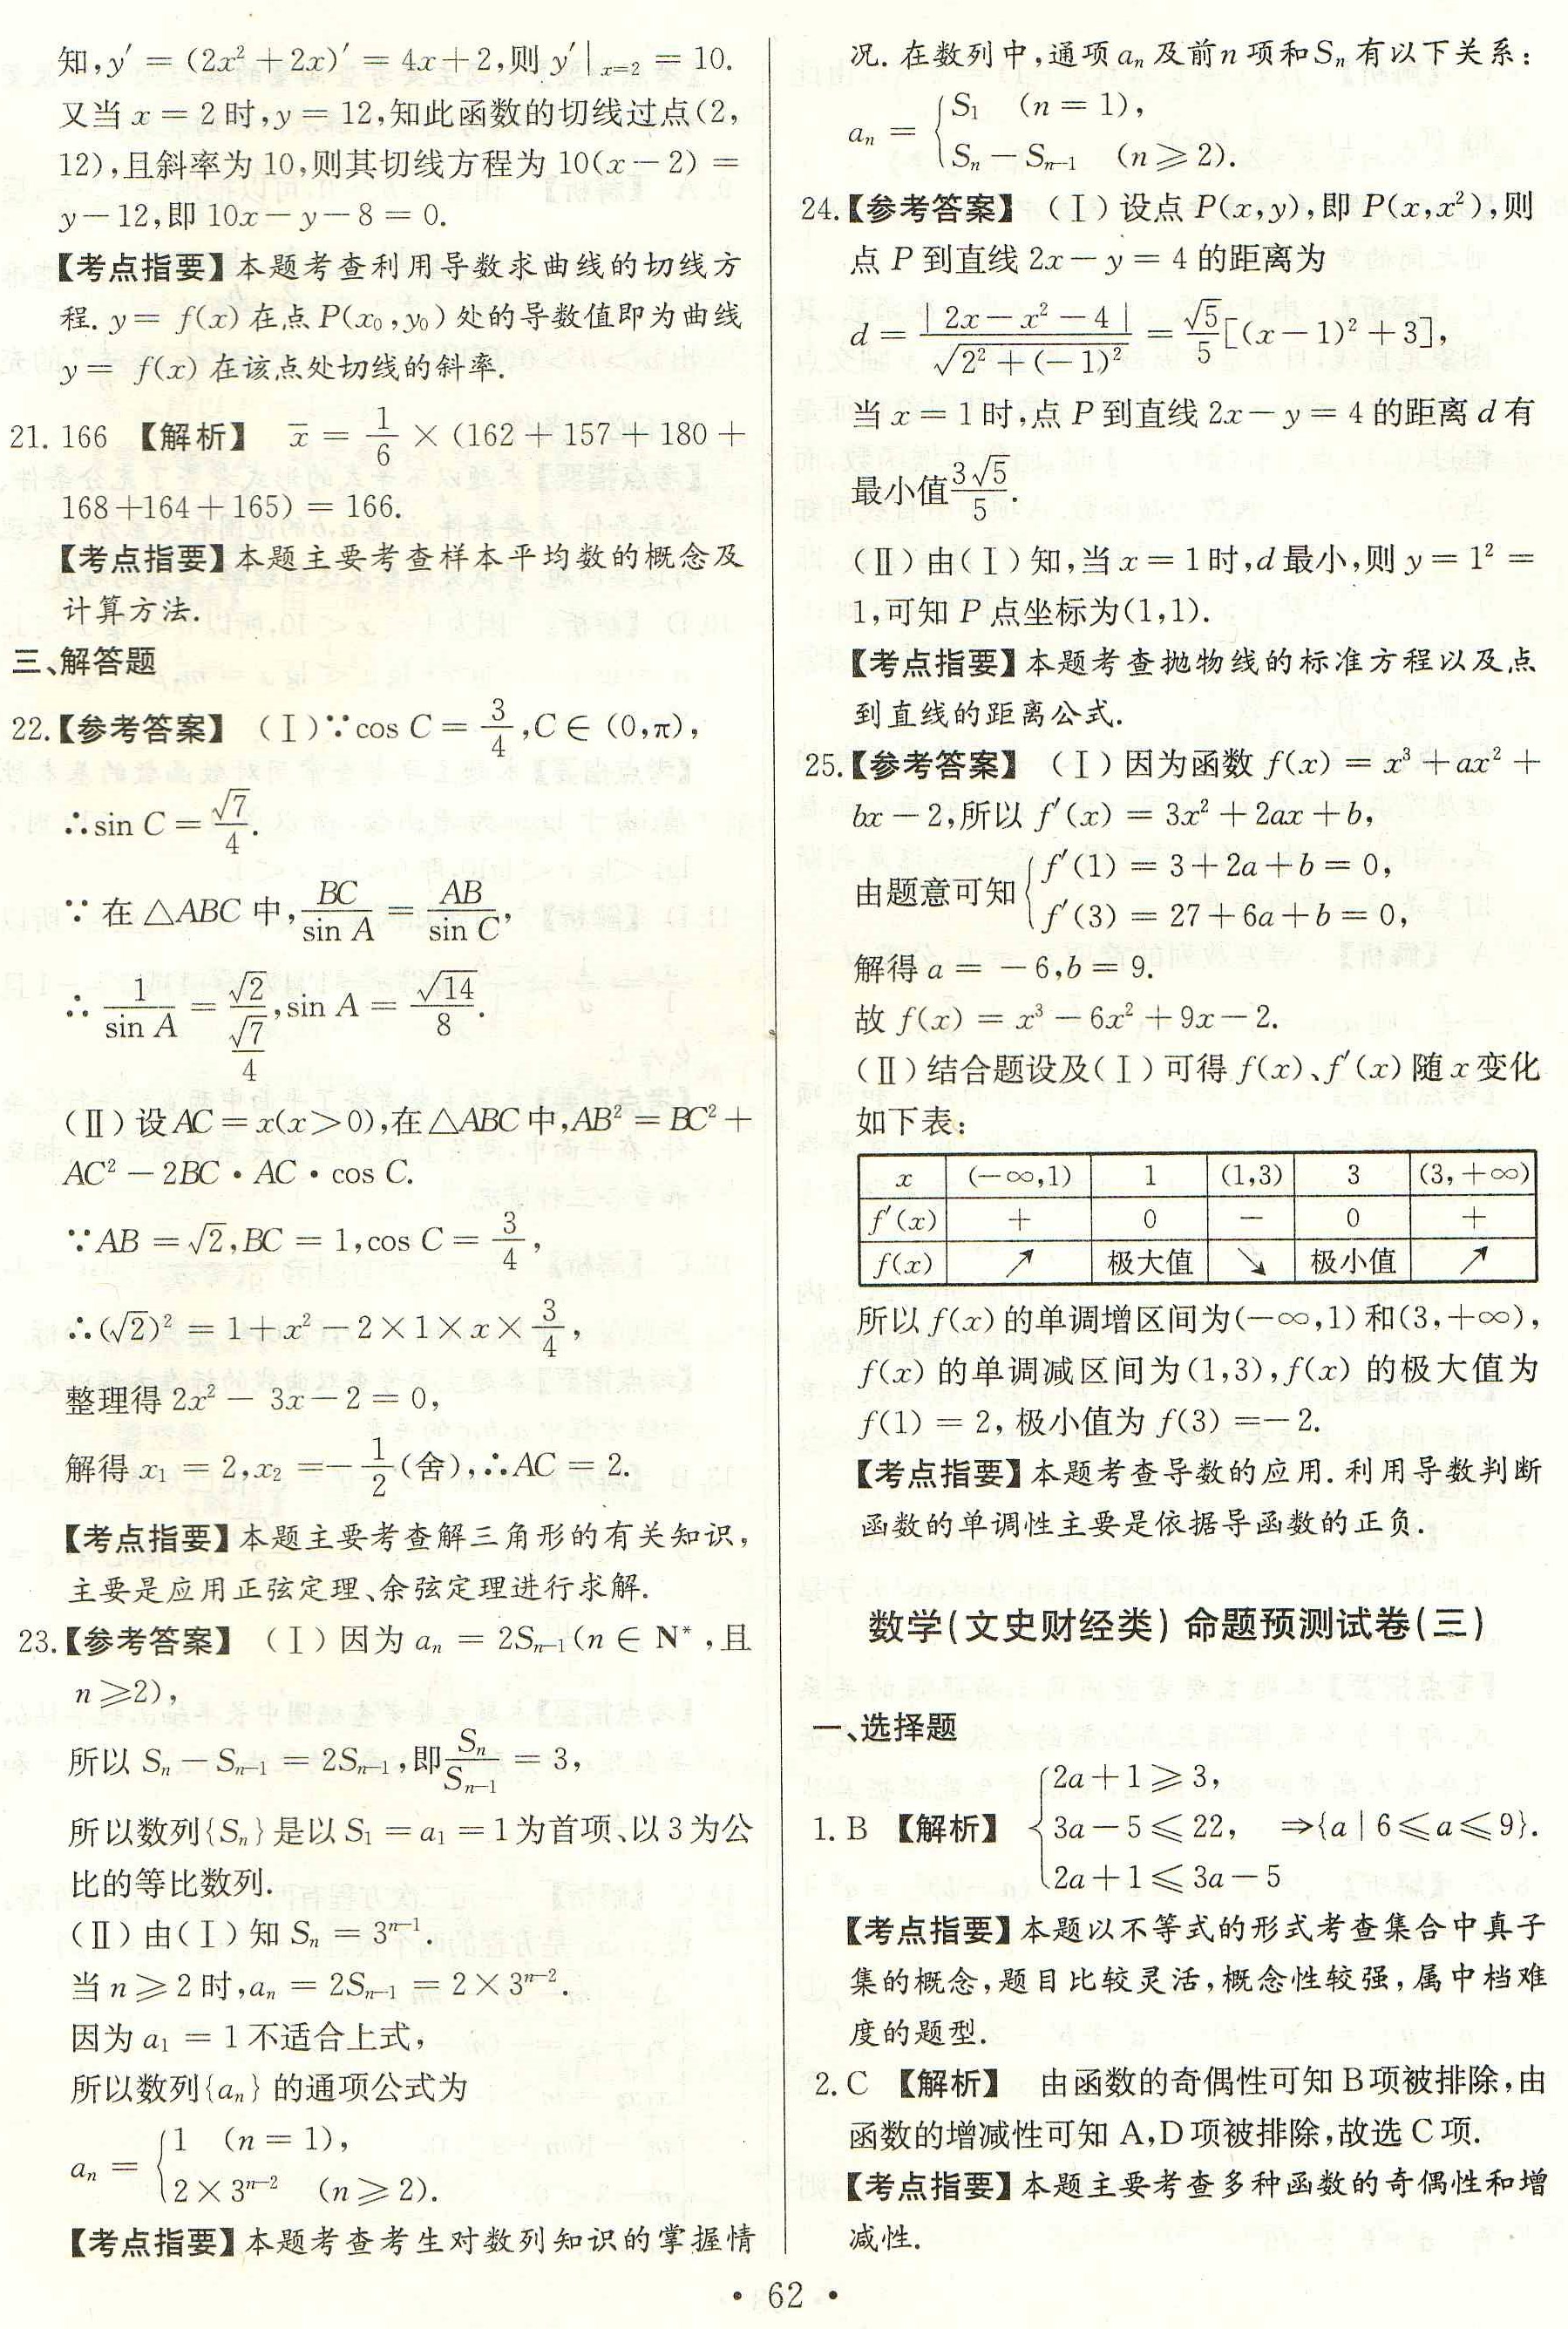 知,y′ = (2x² + 2x)′ = 4x + 2,则 y′|ₓ₌₂ = 10.
又当 x = 2 时,y = 12,知此函数的切线过点(2,
12),且斜率为 10,则其切线方程为 10(x − 2) =
y − 12,即 10x − y − 8 = 0.
【考点指要】本题考查利用导数求曲线的切线方
程. y = f(x) 在点 P(x₀,y₀) 处的导数值即为曲线
y = f(x) 在该点处切线的斜率.
21. 166 【解析】 x̄ = 1/6 × (162 + 157 + 180 +
168 + 164 + 165) = 166.
【考点指要】本题主要考查样本平均数的概念及
计算方法.
三、解答题
22.【参考答案】 (Ⅰ)∵cos C = 3/4,C ∈ (0,π),
∴sin C = √7/4.
∵ 在 △ABC 中, BC/sin A = AB/sin C,
∴ 1/sin A = √2/(√7/4),sin A = √14/8.
(Ⅱ) 设 AC = x(x > 0),在 △ABC 中,AB² = BC² +
AC² − 2BC · AC · cos C.
∵AB = √2,BC = 1,cos C = 3/4,
∴(√2)² = 1 + x² − 2 × 1 × x × 3/4,
整理得 2x² − 3x − 2 = 0,
解得 x₁ = 2,x₂ = − 1/2 (舍),∴AC = 2.
【考点指要】本题主要考查解三角形的有关知识,
主要是应用正弦定理、余弦定理进行求解.
23.【参考答案】 (Ⅰ) 因为 aₙ = 2Sₙ₋₁(n ∈ N*,且
n ⩾ 2),
所以 Sₙ − Sₙ₋₁ = 2Sₙ₋₁,即 Sₙ/Sₙ₋₁ = 3,
所以数列{Sₙ}是以 S₁ = a₁ = 1 为首项、以 3 为公
比的等比数列.
(Ⅱ) 由(Ⅰ) 知 Sₙ = 3ⁿ⁻¹.
当 n ⩾ 2 时,aₙ = 2Sₙ₋₁ = 2 × 3ⁿ⁻².
因为 a₁ = 1 不适合上式,
所以数列{aₙ} 的通项公式为
aₙ = { 1 (n = 1),
2 × 3ⁿ⁻² (n ⩾ 2).
【考点指要】本题考查考生对数列知识的掌握情
况. 在数列中,通项 aₙ 及前 n 项和 Sₙ 有以下关系:
aₙ = { S₁ (n = 1),
Sₙ − Sₙ₋₁ (n ⩾ 2).
24.【参考答案】 (Ⅰ) 设点 P(x,y),即 P(x,x²),则
点 P 到直线 2x − y = 4 的距离为
d = |2x − x² − 4|/√(2² + (−1)²) = √5/5 [(x − 1)² + 3],
当 x = 1 时,点 P 到直线 2x − y = 4 的距离 d 有
最小值 3√5/5.
(Ⅱ) 由(Ⅰ) 知,当 x = 1 时,d 最小,则 y = 1² =
1,可知 P 点坐标为(1,1).
【考点指要】本题考查抛物线的标准方程以及点
到直线的距离公式.
25.【参考答案】 (Ⅰ) 因为函数 f(x) = x³ + ax² +
bx − 2,所以 f′(x) = 3x² + 2ax + b,
由题意可知 { f′(1) = 3 + 2a + b = 0,
f′(3) = 27 + 6a + b = 0,
解得 a = − 6,b = 9.
故 f(x) = x³ − 6x² + 9x − 2.
(Ⅱ) 结合题设及(Ⅰ) 可得 f(x)、f′(x) 随 x 变化
如下表:
x (−∞,1) 1 (1,3) 3 (3,+∞)
f′(x) + 0 − 0 +
f(x) ↗ 极大值 ↘ 极小值 ↗
所以 f(x) 的单调增区间为(−∞,1) 和(3,+∞),
f(x) 的单调减区间为(1,3),f(x) 的极大值为
f(1) = 2, 极小值为 f(3) = − 2.
【考点指要】本题考查导数的应用. 利用导数判断
函数的单调性主要是依据导函数的正负.
数学(文史财经类) 命题预测试卷(三)
一、选择题
1. B 【解析】 { 2a + 1 ⩾ 3,
3a − 5 ⩽ 22, ⇒{a | 6 ⩽ a ⩽ 9}.
2a + 1 ⩽ 3a − 5
【考点指要】本题以不等式的形式考查集合中真子
集的概念,题目比较灵活,概念性较强,属中档难
度的题型.
2. C 【解析】 由函数的奇偶性可知 B 项被排除,由
函数的增减性可知 A,D 项被排除,故选 C 项.
【考点指要】本题主要考查多种函数的奇偶性和增
减性.
· 62 ·